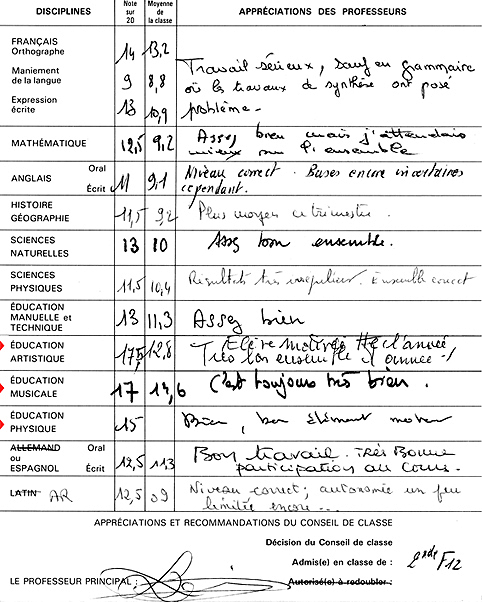 DISCIPLINES Note sur 20 Moyenne de la classe APPRÉCIATIONS DES PROFESSEURS
FRANÇAIS
Orthographe 14 13,2
Maniement de la langue 9 8,8
Expression écrite 13 10,9
Travail sérieux, sauf en grammaire
où les travaux de synthèse ont posé
problème.
MATHÉMATIQUE 12,5 9,2 Assez bien mais j'attendais
mieux sur l'ensemble
ANGLAIS Oral
Écrit 11 9,1
Niveau correct. Bases encore incertaines
cependant.
HISTOIRE
GÉOGRAPHIE 11,5 9,2 Plus moyen ce trimestre.
SCIENCES
NATURELLES 13 10 Assez bon ensemble.
SCIENCES
PHYSIQUES 11,5 10,4 Résultats très irréguliers. Ensemble correct
ÉDUCATION
MANUELLE et
TECHNIQUE 13 11,3 Assez bien
ÉDUCATION
ARTISTIQUE 17,5 12,8
Elève motivée tte l'année
Très bon ensemble d'année
ÉDUCATION
MUSICALE 17 14,6 C'est toujours très bien.
ÉDUCATION
PHYSIQUE 15 Bien, bon élément moteur
ALLEMAND Oral
ou
ESPAGNOL Écrit 12,5 11,3
Bon travail. Très Bonne
participation au Cours.
LATIN AR 12,5 09 Niveau correct; autonomie un peu
limitée encore...
APPRÉCIATIONS ET RECOMMANDATIONS DU CONSEIL DE CLASSE
Décision du Conseil de classe
Admis(e) en classe de : 2nde F12
LE PROFESSEUR PRINCIPAL : Autorisé(e) à redoubler :